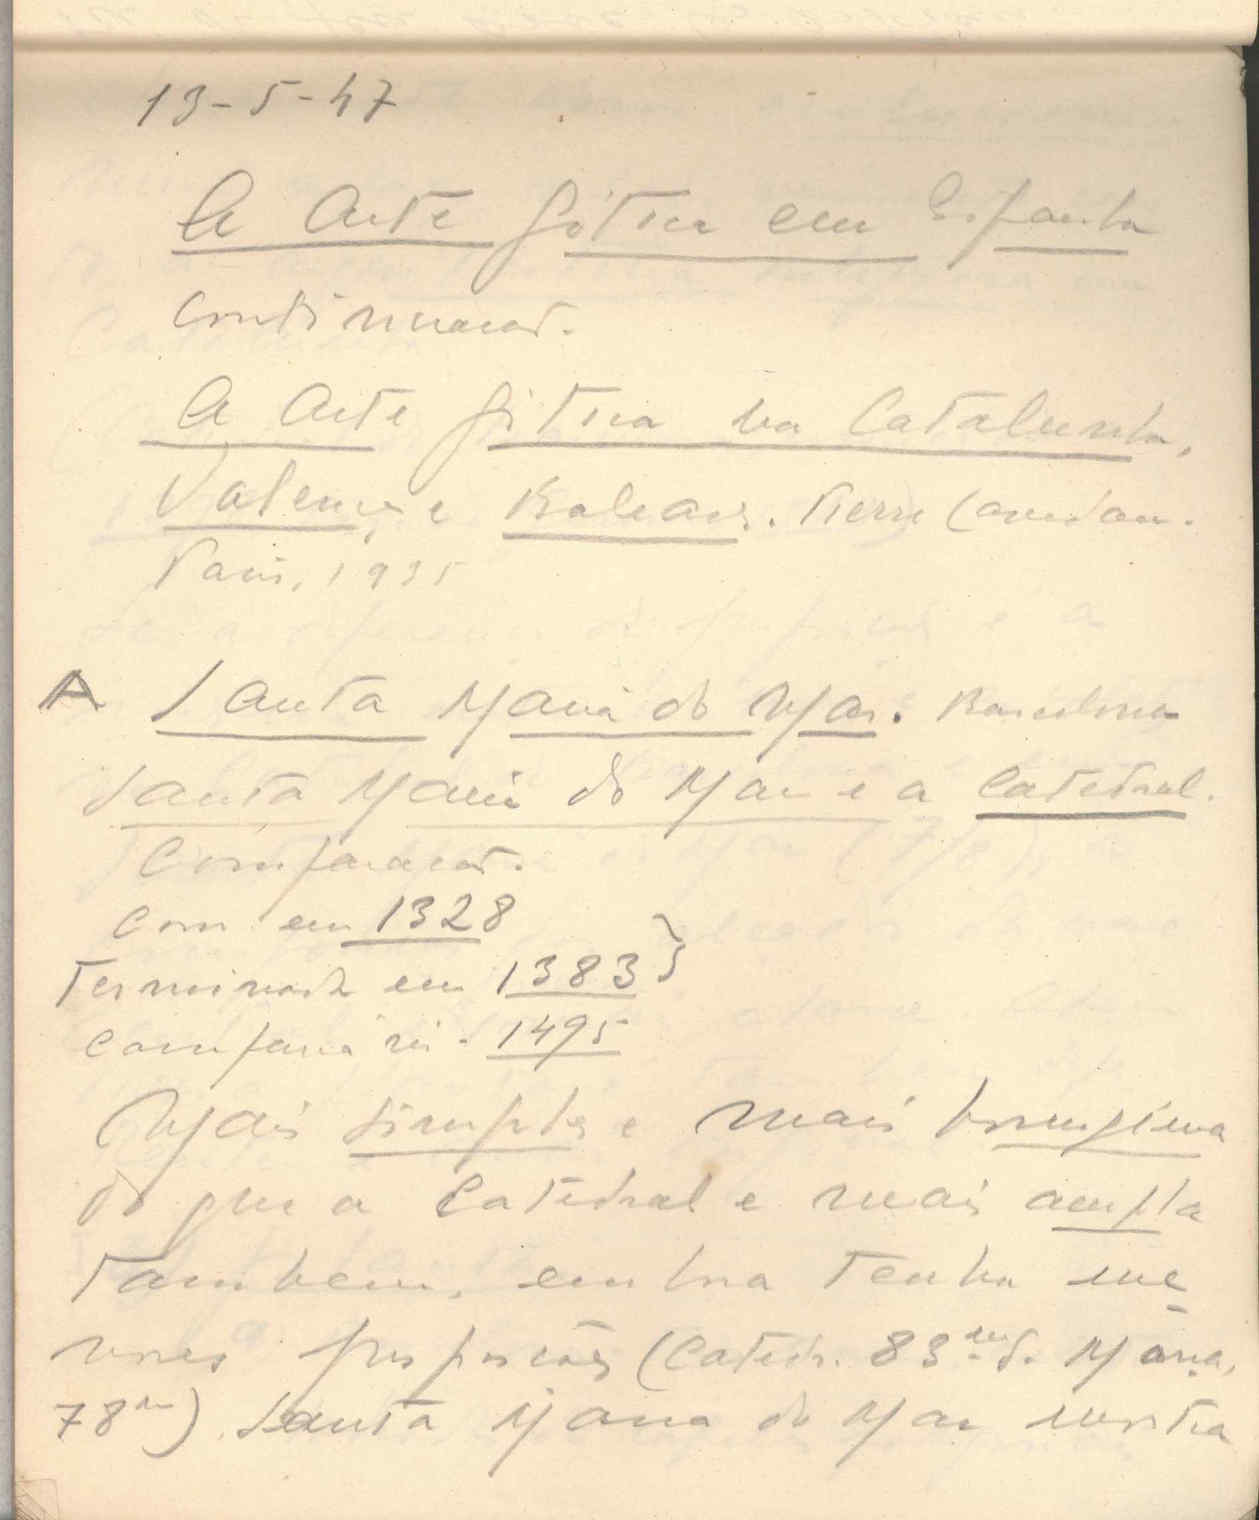 13-5-47
A Arte gótica em Espanha
Continuação.
A Arte gótica na Catalunha,
Valença e Baleares. Pierre Lavedan.
Paris, 1935
A Santa Maria do Mar. Barcelona
Santa Maria do Mar e a Catedral.
Comparação.
Com. em 1328
Terminada em 1383}
Campanário. 1495
Mais simples e mais homogénea
do que a Catedral e mais ampla
tambem, embora tenha me
nores proporções (Catedr. 83m S. Maria,
78m). Santa Maria do Mar mostra